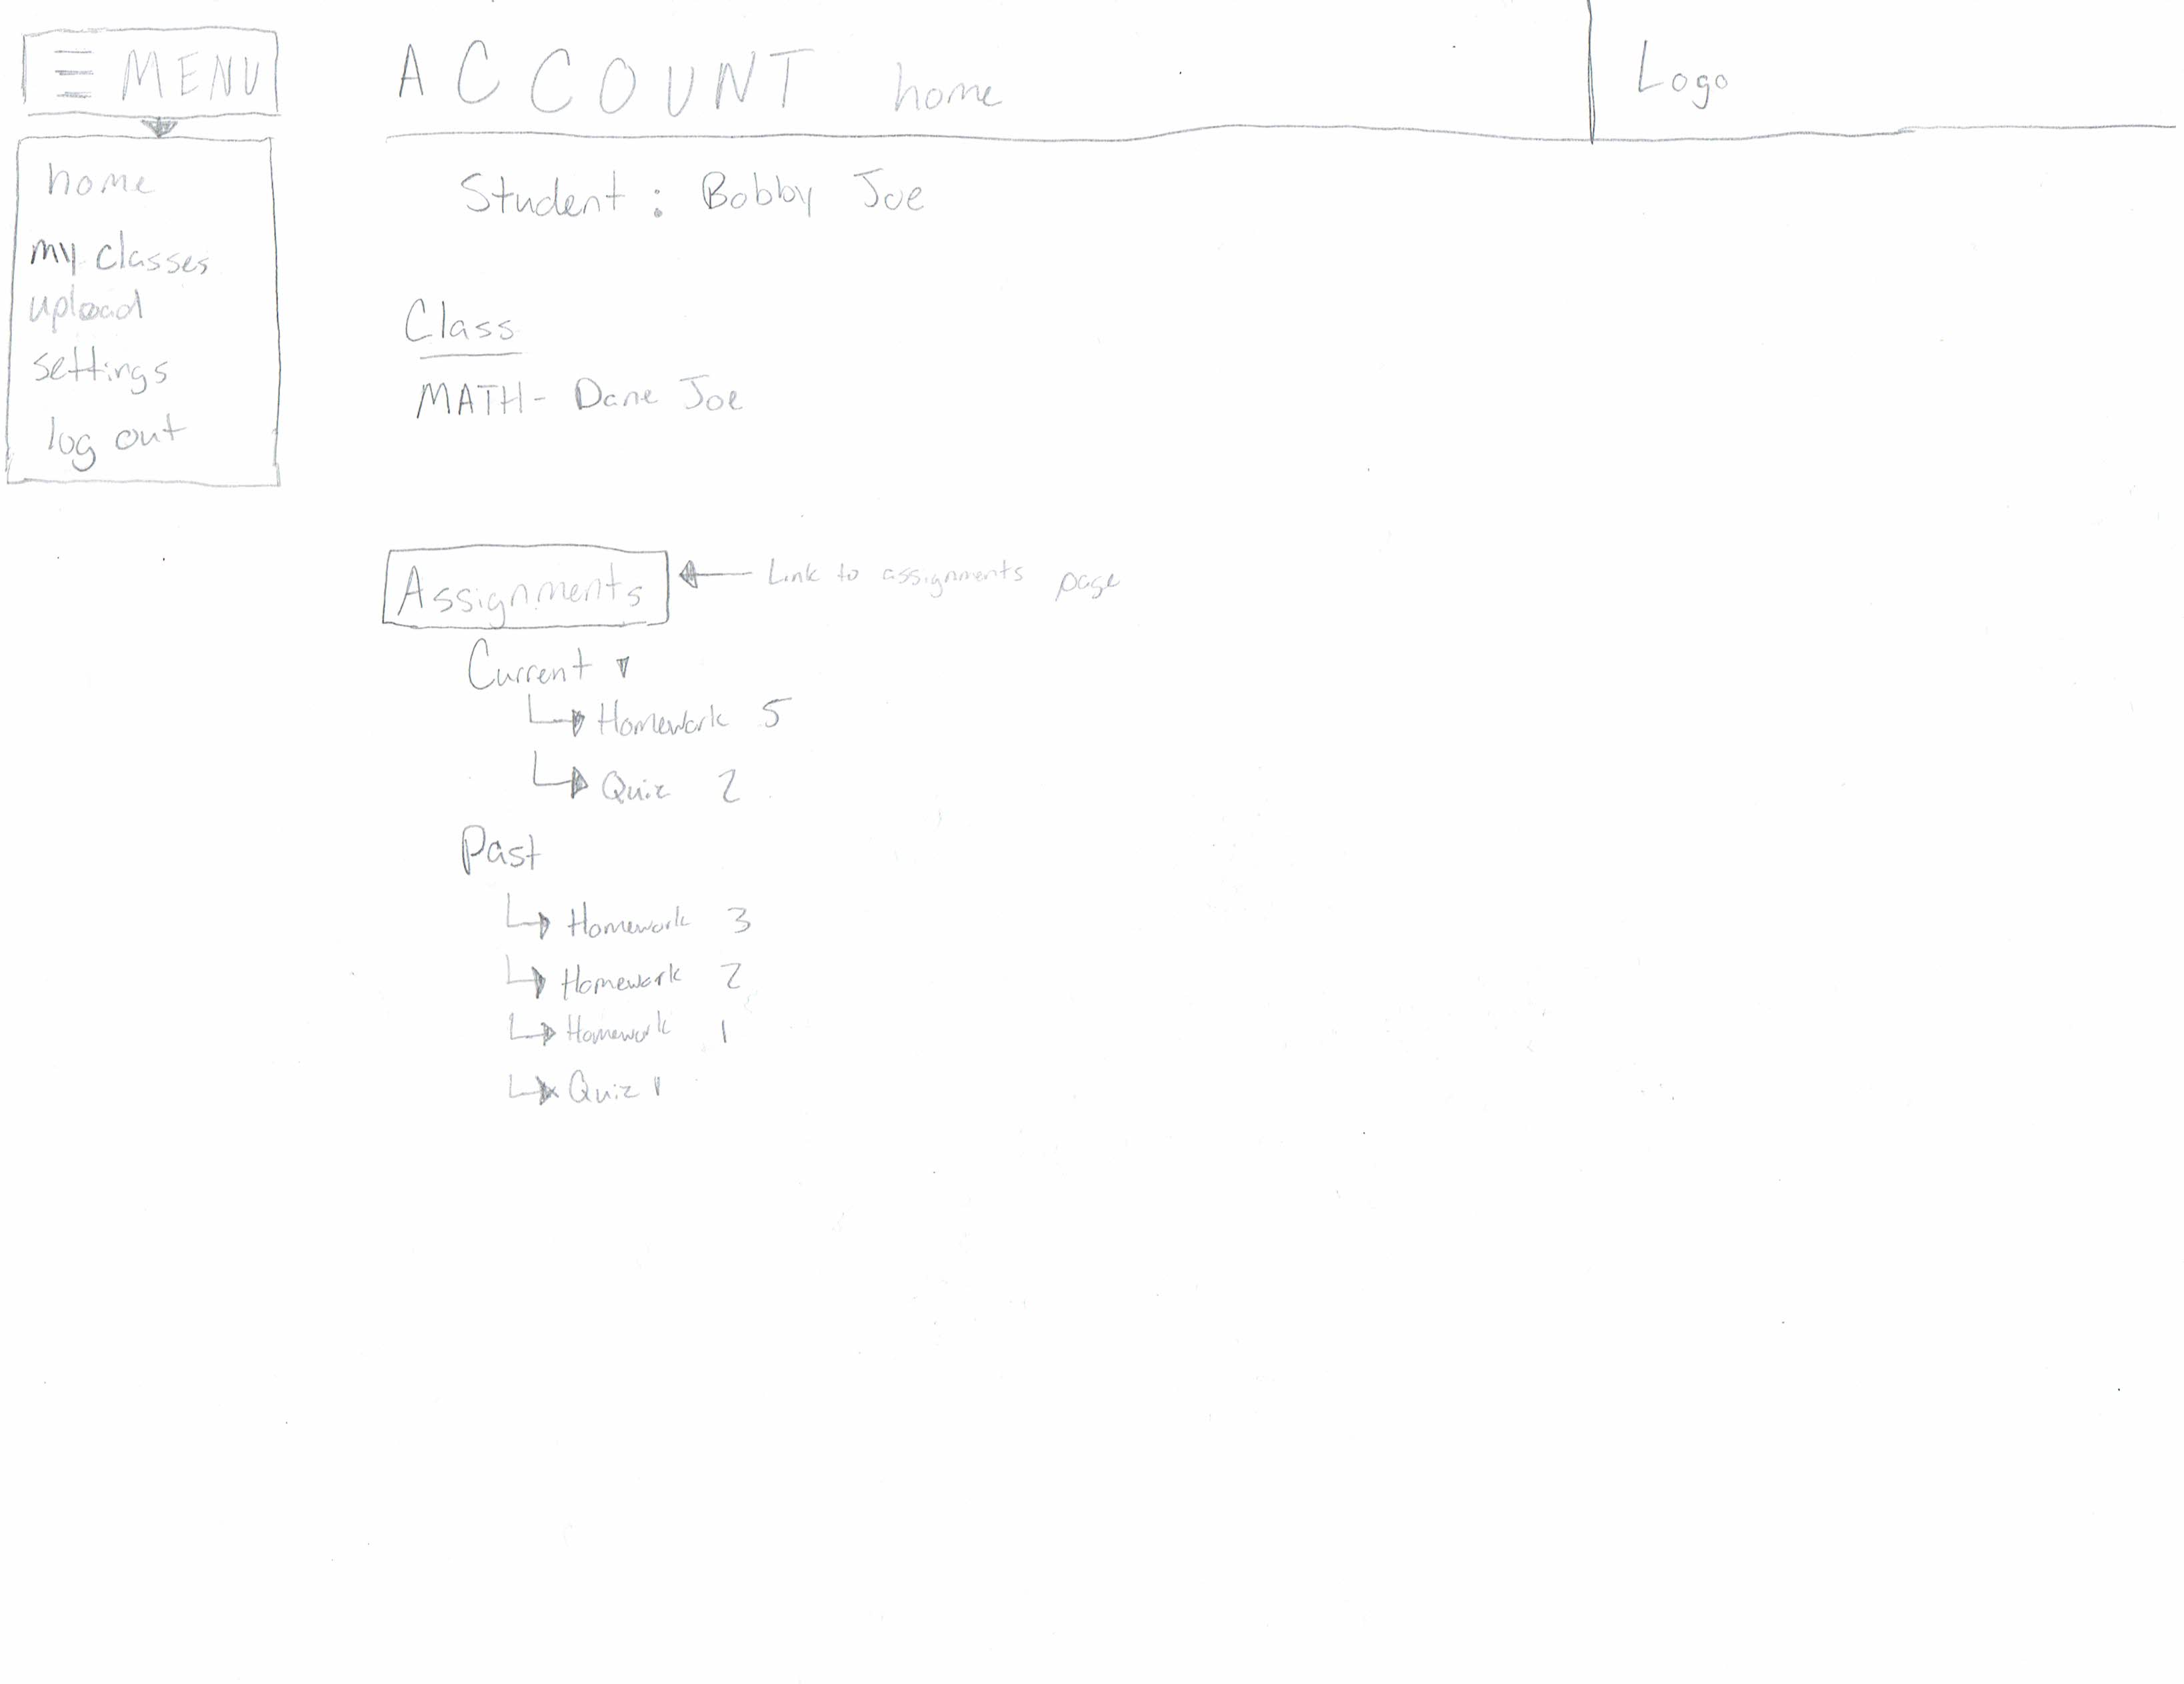 MENU
ACCOUNT home
Logo
home
my classes
upload
settings
log out
Student : Bobby Joe
Class
MATH - Dane Joe
Assignments
Link to assignments page
Current
Homework 5
Quiz 2
Past
Homework 3
Homework 2
Homework 1
Quiz 1